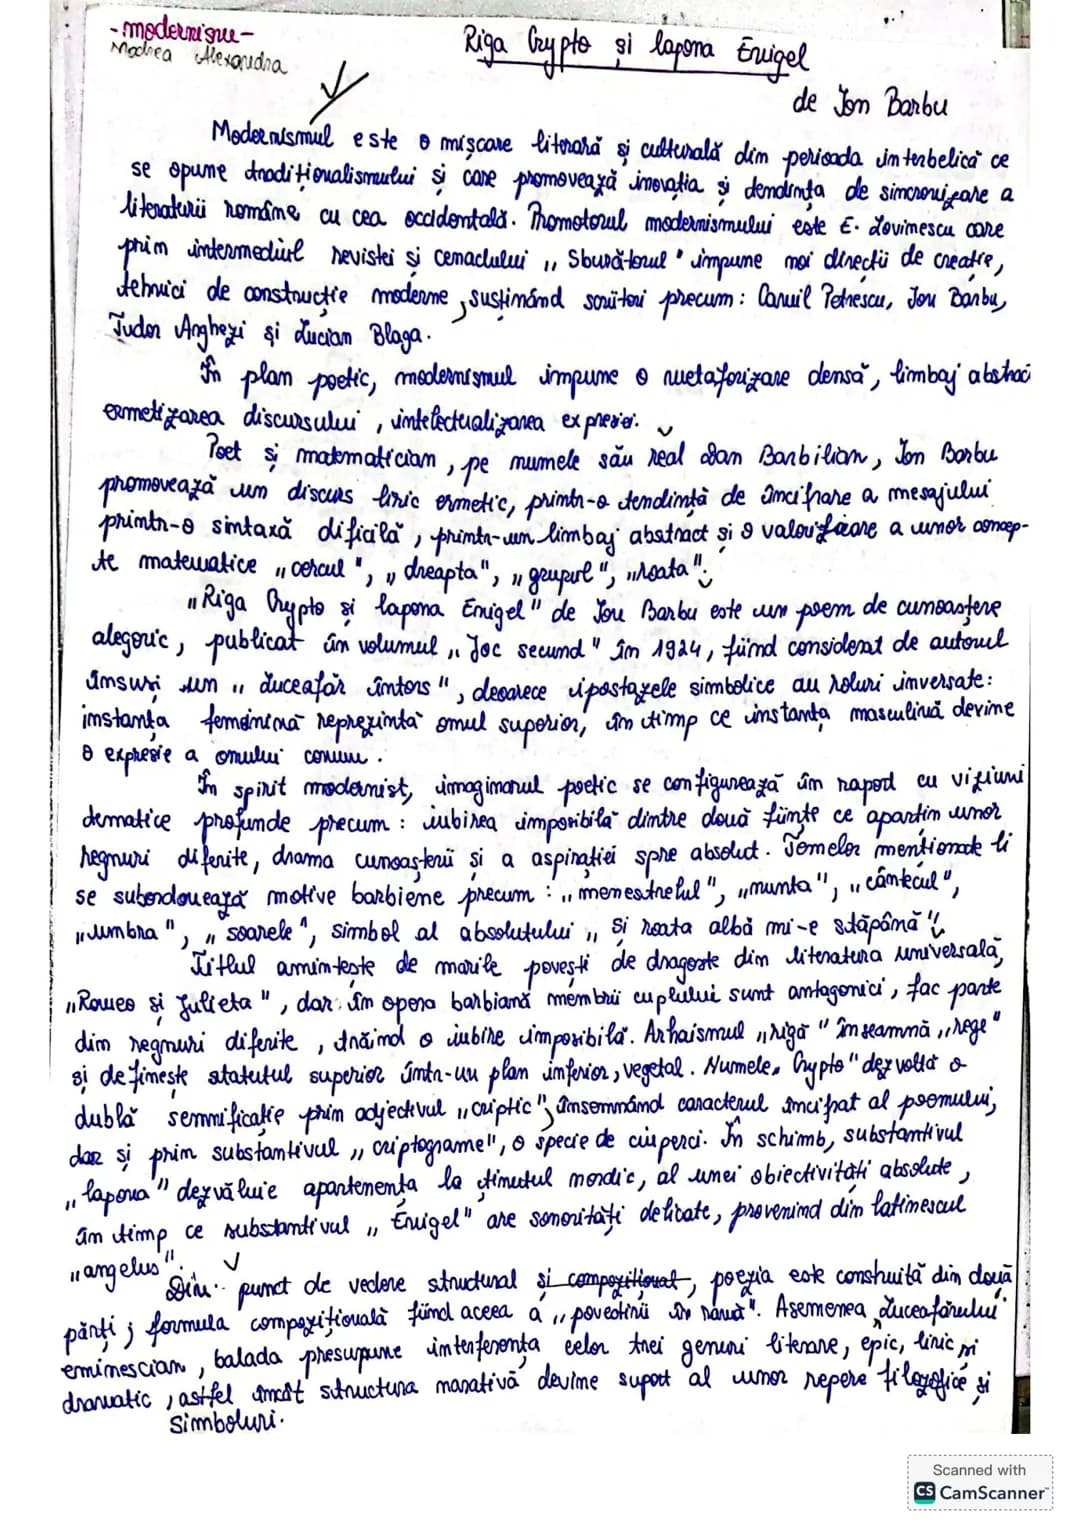 -modernism-
Modrea Alexandra
Riga Crypto și lapona Enigel
de Ion Barbu
Modernismul este o mișcare literară și culturală din perioada interbelică ce
se opune tradiționalismului și care promovează inovația și tendința de sincronizare a
literaturii române cu cea occidentală. Promotorul modernismului este E. Lovinescu care
prin intermediul revistei și cenaclului „Sburătorul" impune noi direcții de creație,
tehnici de construcție moderne, susținând scriitori precum: Camil Petrescu, Ion Barbu,
Tudor Arghezi și Lucian Blaga.
În plan poetic, modernismul impune o metaforizare densă, limbaj abstract
ermetizarea discursului, intelectualizarea expresiei.
Poet și matematician, pe numele său real Dan Barbilian, Ion Barbu
promovează un discurs liric ermetic, printr-o tendință de încifrare a mesajului
printr-o sintaxă dificilă, printr-un limbaj abstract și o valorificare a unor concep-
te matematice „cercul", „dreapta", „grupul", „roata".
„Riga Crypto și lapona Enigel" de Ion Barbu este un poem de cunoaștere
alegoric, publicat în volumul „Joc secund" în 1924, fiind considerat de autorul
însuși un „Luceafăr întors", deoarece ipostazele simbolice au roluri inversate:
instanța feminină reprezintă omul superior, în timp ce instanța masculină devine
o expresie a omului comun.
În spirit modernist, imaginarul poetic se configurează în raport cu viziuni
tematice profunde precum: iubirea imposibilă dintre două ființe ce aparțin unor
regnuri diferite, drama cunoașterii și a aspirației spre absolut. Temelor menționate li
se subordonează motive barbiene precum: „menestrelul", „nunta", „cântecul",
„umbra", „soarele", simbol al absolutului „Și roata albă mi-e stăpână".
Titlul amintește de marile povești de dragoste din literatura universală,
„Romeo și Julieta", dar în opera barbiană membrii cuplului sunt antagonici, fac parte
din regnuri diferite, trăind o iubire imposibilă. Arhaismul „rigă" înseamnă „rege"
și definește statutul superior într-un plan inferior, vegetal. Numele „Crypto" dezvoltă o
dublă semnificație prin adjectivul „criptic", însemnând caracterul încifrat al poemului,
dar și prin substantivul „criptograme", o specie de ciuperci. În schimb, substantivul
„lapona" dezvăluie apartenența la ținutul nordic, al unei obiectivități absolute,
în timp ce substantivul „Enigel" are sonorități delicate, provenind din latinescul
„angelus".
Din punct de vedere structural și compozițional, poezia este construită din două
părți; formula compozițională fiind aceea a „povestirii în ramă". Asemenea Luceafărului
eminescian, balada presupune interferența celor trei genuri literare, epic, liric și
dramatic, astfel încât structura narativă devine suport al unor repere filozofice și
simboluri.
Scanned with
CS CamScanner